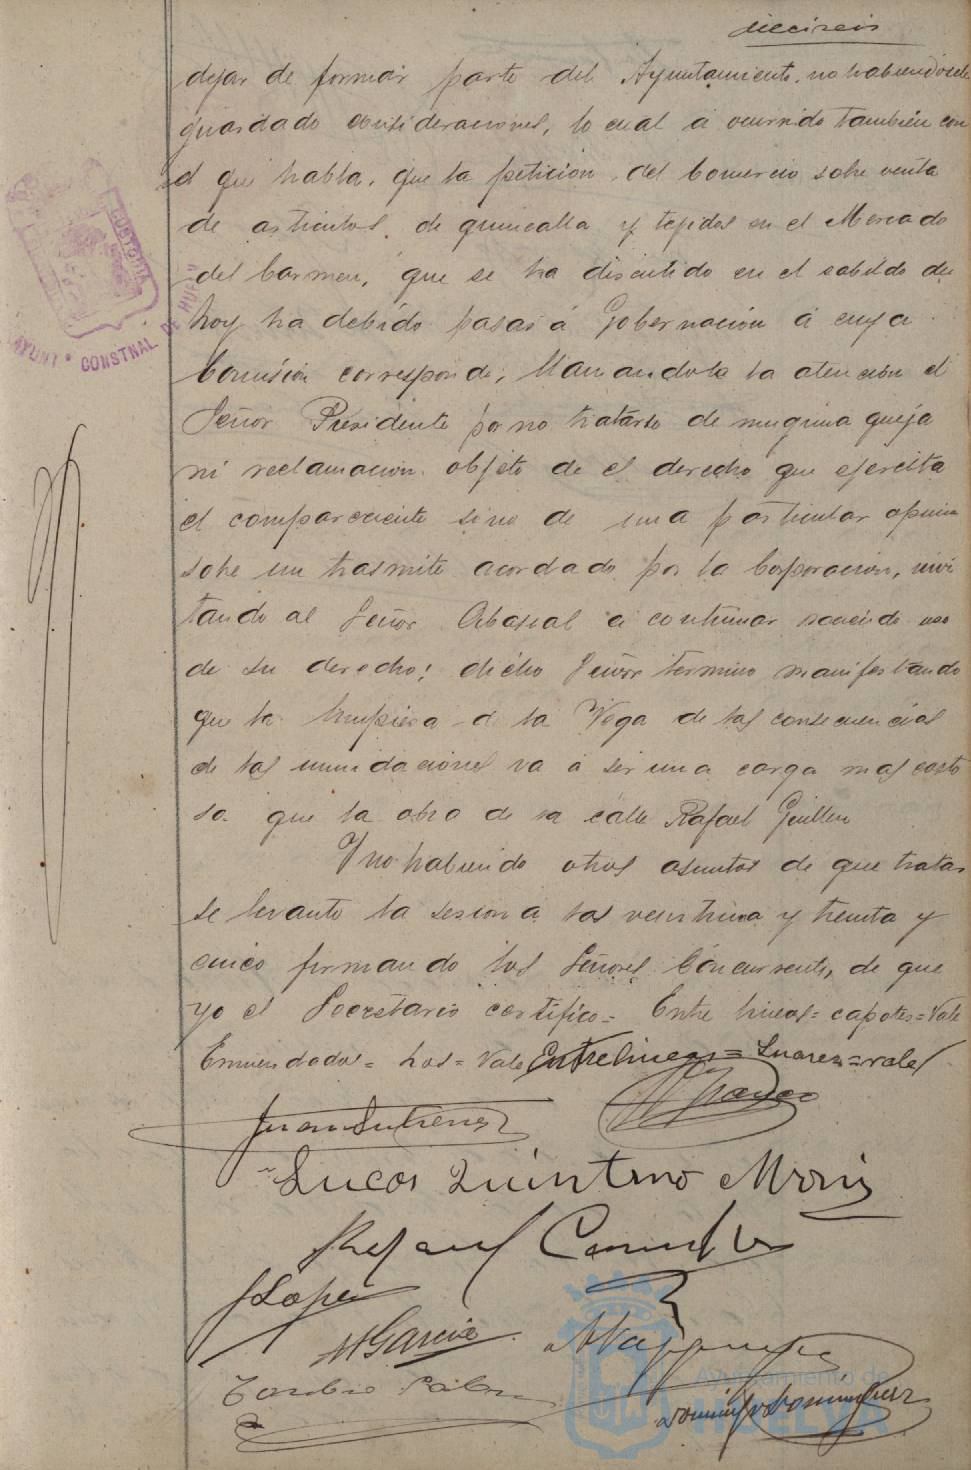 dieciseis
dejar de formar parte del Ayuntamiento, no habiendosele
guardado consideraciones, lo cual á ocurrido también con
el que habla, que la petición del Comercio sobre venta
de articulos de quincalla y tejidos en el Mercado
del Carmen, que se ha discutido en el cabildo de
hoy ha debido pasar á Gobernación á cuya
Comisión corresponde; llamandole la atención el
Señor Presidente por no tratarse de ninguna queja
ni reclamación objeto de el derecho que ejercita
el compareciente sino de una particular opinion
sobre un trasmite acordado por la Corporación, invi
tando al Señor Abascal á continuar haciendo uso
de su derecho; dicho Señor termino manifestando
que la limpieza de la Vega de las consecuencias
de las inundaciones va á ser una carga mas costo
sa que la obra de la calle Rafael Guillen
Y no habiendo otros asuntos de que tratar
se levanto la sesion á las veintiuna y treinta y
cinco firmando los Señores Concurrentes, de que
yo el Secretario certifico = Entre lineas = capotes = Vale
Enmendado = los = Vale Entrelineas = Suarez = vale
Juan Gutierrez
Lucas Quintero
Rafael
J Lopez
M Garcia
Toribio
Domingo Dominguez
AYUNT CONSTNAL DE HUELV
CUSTODIA
Ayuntamiento de
HUELVA